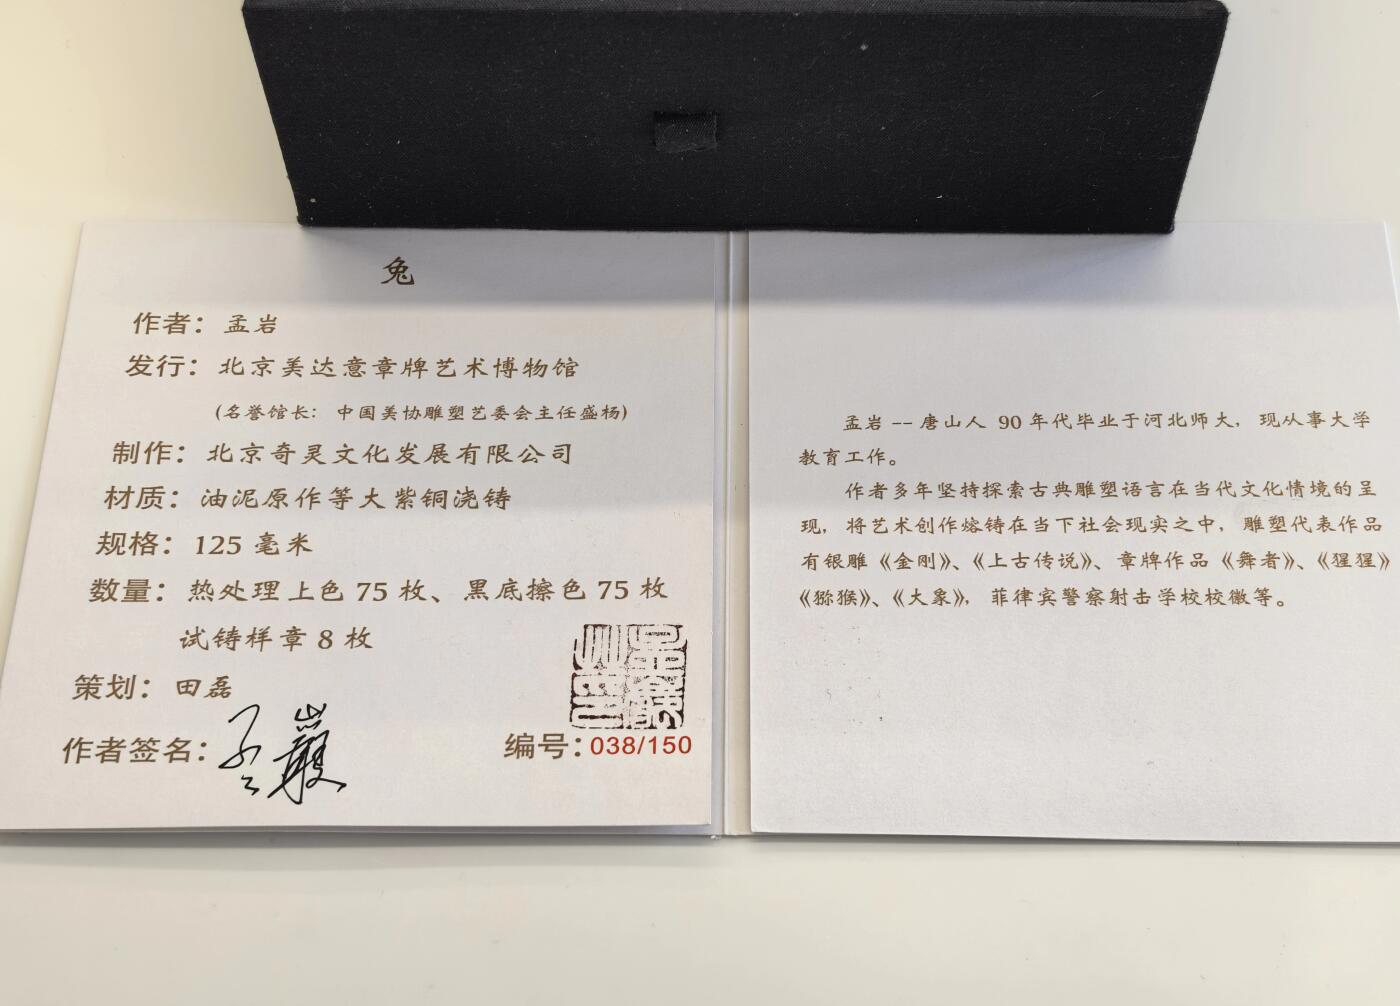 兔
作者：孟岩
发行：北京美达意章牌艺术博物馆
(名誉馆长：中国美协雕塑艺委会主任盛杨)
制作：北京奇灵文化发展有限公司
材质：油泥原作等大紫铜浇铸
规格：125 毫米
数量：热处理上色 75 枚、黑底擦色 75 枚
试铸样章 8 枚
策划：田磊
作者签名：孟巖
编号：038/150
孟岩 -- 唐山人 90 年代毕业于河北师大，现从事大学
教育工作。
作者多年坚持探索古典雕塑语言在当代文化情境的呈
现，将艺术创作熔铸在当下社会现实之中，雕塑代表作品
有银雕《金刚》、《上古传说》、章牌作品《舞者》、《猩猩》
《猕猴》、《大象》，菲律宾警察射击学校校徽等。